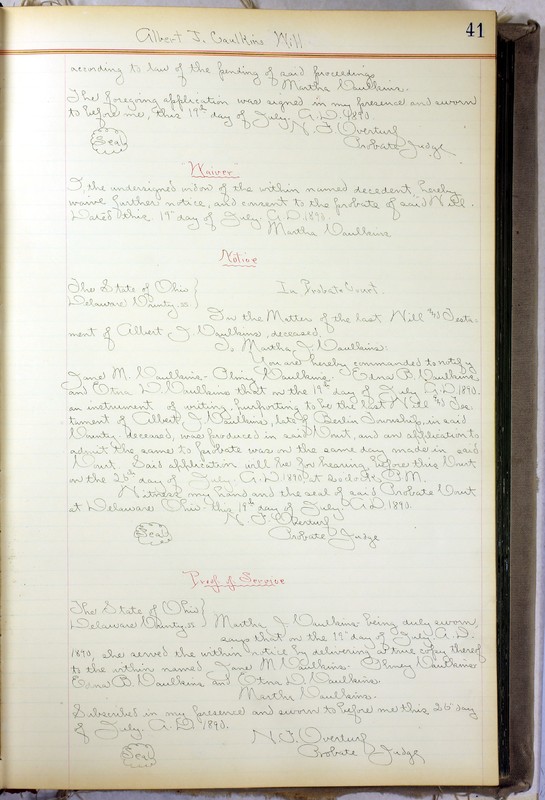 Albert J. Caulkins Will
41
according to law of the pending of said proceedings
Martha Caulkins.
The foregoing application was signed in my presence and sworn
to before me, this 19th day of July. A.D. 1890.
N. F. Overturf
Seal
Probate Judge
"Waiver"
I, the undersigned widow of the within named decedent, hereby
waive further notice, and consent to the probate of said Will.
Dated this 19" day of July. A.D. 1890.
Martha Caulkins
Notice
The State of Ohio }
In Probate Court.
Delaware County ss }
In the Matter of the Last Will & Testa-
ment of Albert J. Caulkins, deceased.
To Martha J. Caulkins:
You are hereby commanded to notify
Jane M. Caulkins - Caulkins - Edna B. Caulkins
and Etna D. Caulkins that on the 19th day of July A.D. 1890.
an instrument of writing, purporting to be the last Will & Tes-
tament of Albert J. Caulkins, late of Berlin Township, in said
County, deceased, was produced in said Court, and an application to
admit the same to probate was on the same day made in said
Court. Said application will be for hearing before this Court
on the 26th day of July. A.D. 1890, at o'clock P.M.
Witness my hand and the seal of said Probate Court
at Delaware Ohio this 19th day of July A.D. 1890.
N. F. Overturf
Seal
Probate Judge
Proof of Service
The State of Ohio }
Delaware County ss } Martha J. Caulkins being duly sworn,
says that on the 19" day of July A.D.
1890, she served the within notice by delivering a true copy thereof
to the within named Jane M. Caulkins. Caulkins
Edna B. Caulkins and Etna D. Caulkins.
Martha Caulkins.
Subscribed in my presence and sworn to before me this 26" day
of July. A.D. 1890.
N. F. Overturf
Seal
Probate Judge